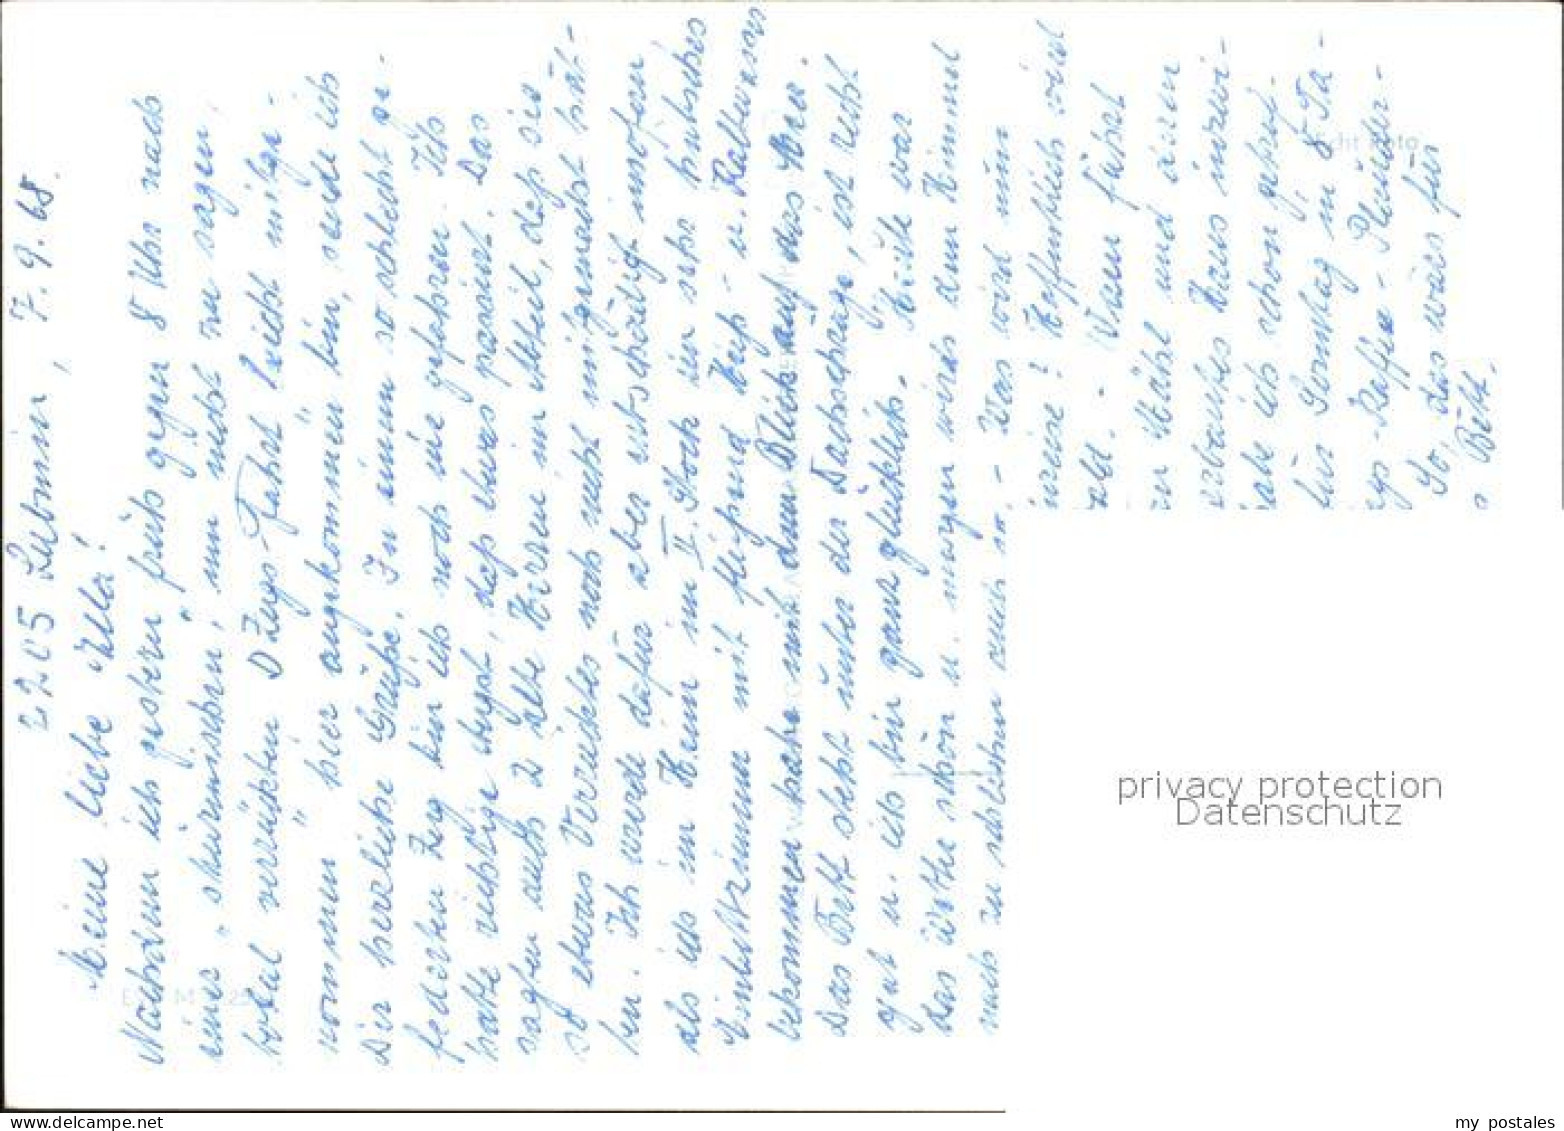 2205 Lubmin, 7.9.68.
Meine liebe Illa!
Nachdem ich gestern früh gegen 8 Uhr nach
einer "stürmischen", um nicht zu sagen,
total verrückten D Zugs-Fahrt leicht mitge-
nommen" hier angekommen bin, sende ich
Dir herzliche Grüße. In einem so schlecht ge-
federten Zug bin ich noch nie gefahren. Ich
hatte richtige Angst, daß etwas passiert. Das
sagten auch 2 alte Herren im Abteil, daß sie
so etwas Verrücktes noch nicht mitgemacht hät-
ten. Ich wurde dafür aber entschädigt insofern
als ich im Heim im II. Stock ein sehr hübsches
Einbettzimmer mit fließend Heiß- u. Kaltwasser
bekommen habe mit dem Blick auf das Meer.
Das Bett steht unter der Dachschräge, ist recht
gut u. ich bin ganz glücklich. Heute war
das Wetter schön u. morgen wirds dem Himmel
nach zu schließen auch so. - Was wird nun
weise? Hoffentlich wird
ald. - Wann fährt
er Stühl und
erbautes Haus inzwi-
habe ich schon getrof-
für Sonntag in 8 Ta-
gs-Kaffee-Plauder-
So, das wärs für
s Bett.
privacy protection
Datenschutz
my postales